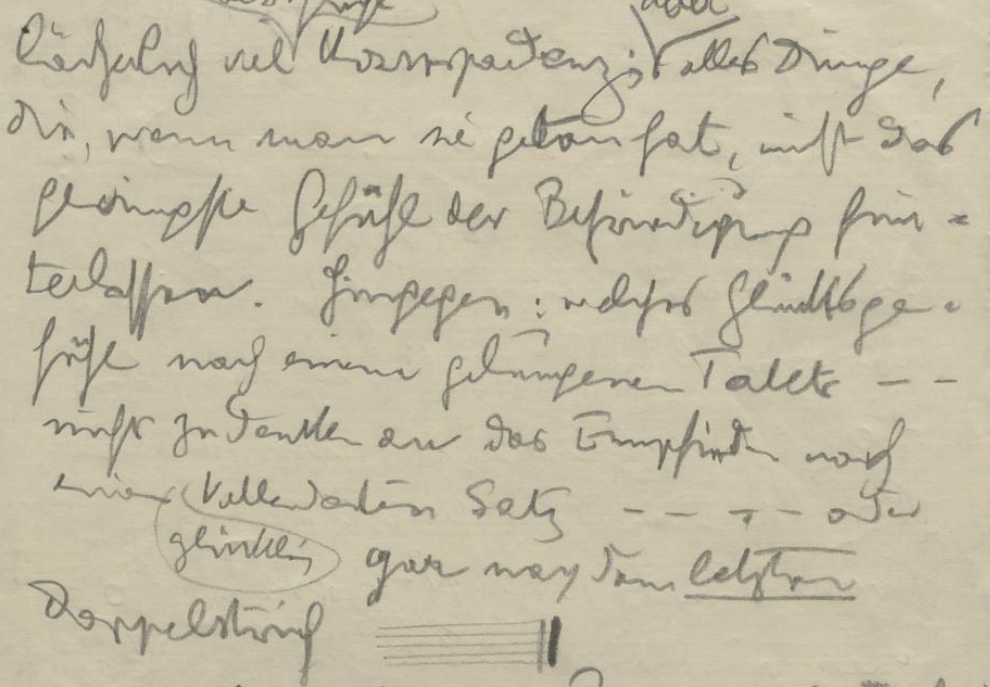 aber
lächerlich viel Korrespondenz; alles Dinge,
die, wenn man sie getan hat, nicht das
geringste Gefühl der Befriedigung hin=
terlassen. Hingegen: welches Glücksge=
fühl nach einem gelungenen Takte --
nicht zu denken an das Empfinden nach
einem vollendeten Satz ---- oder
glücklich gar nach dem letzten
Doppelstrich